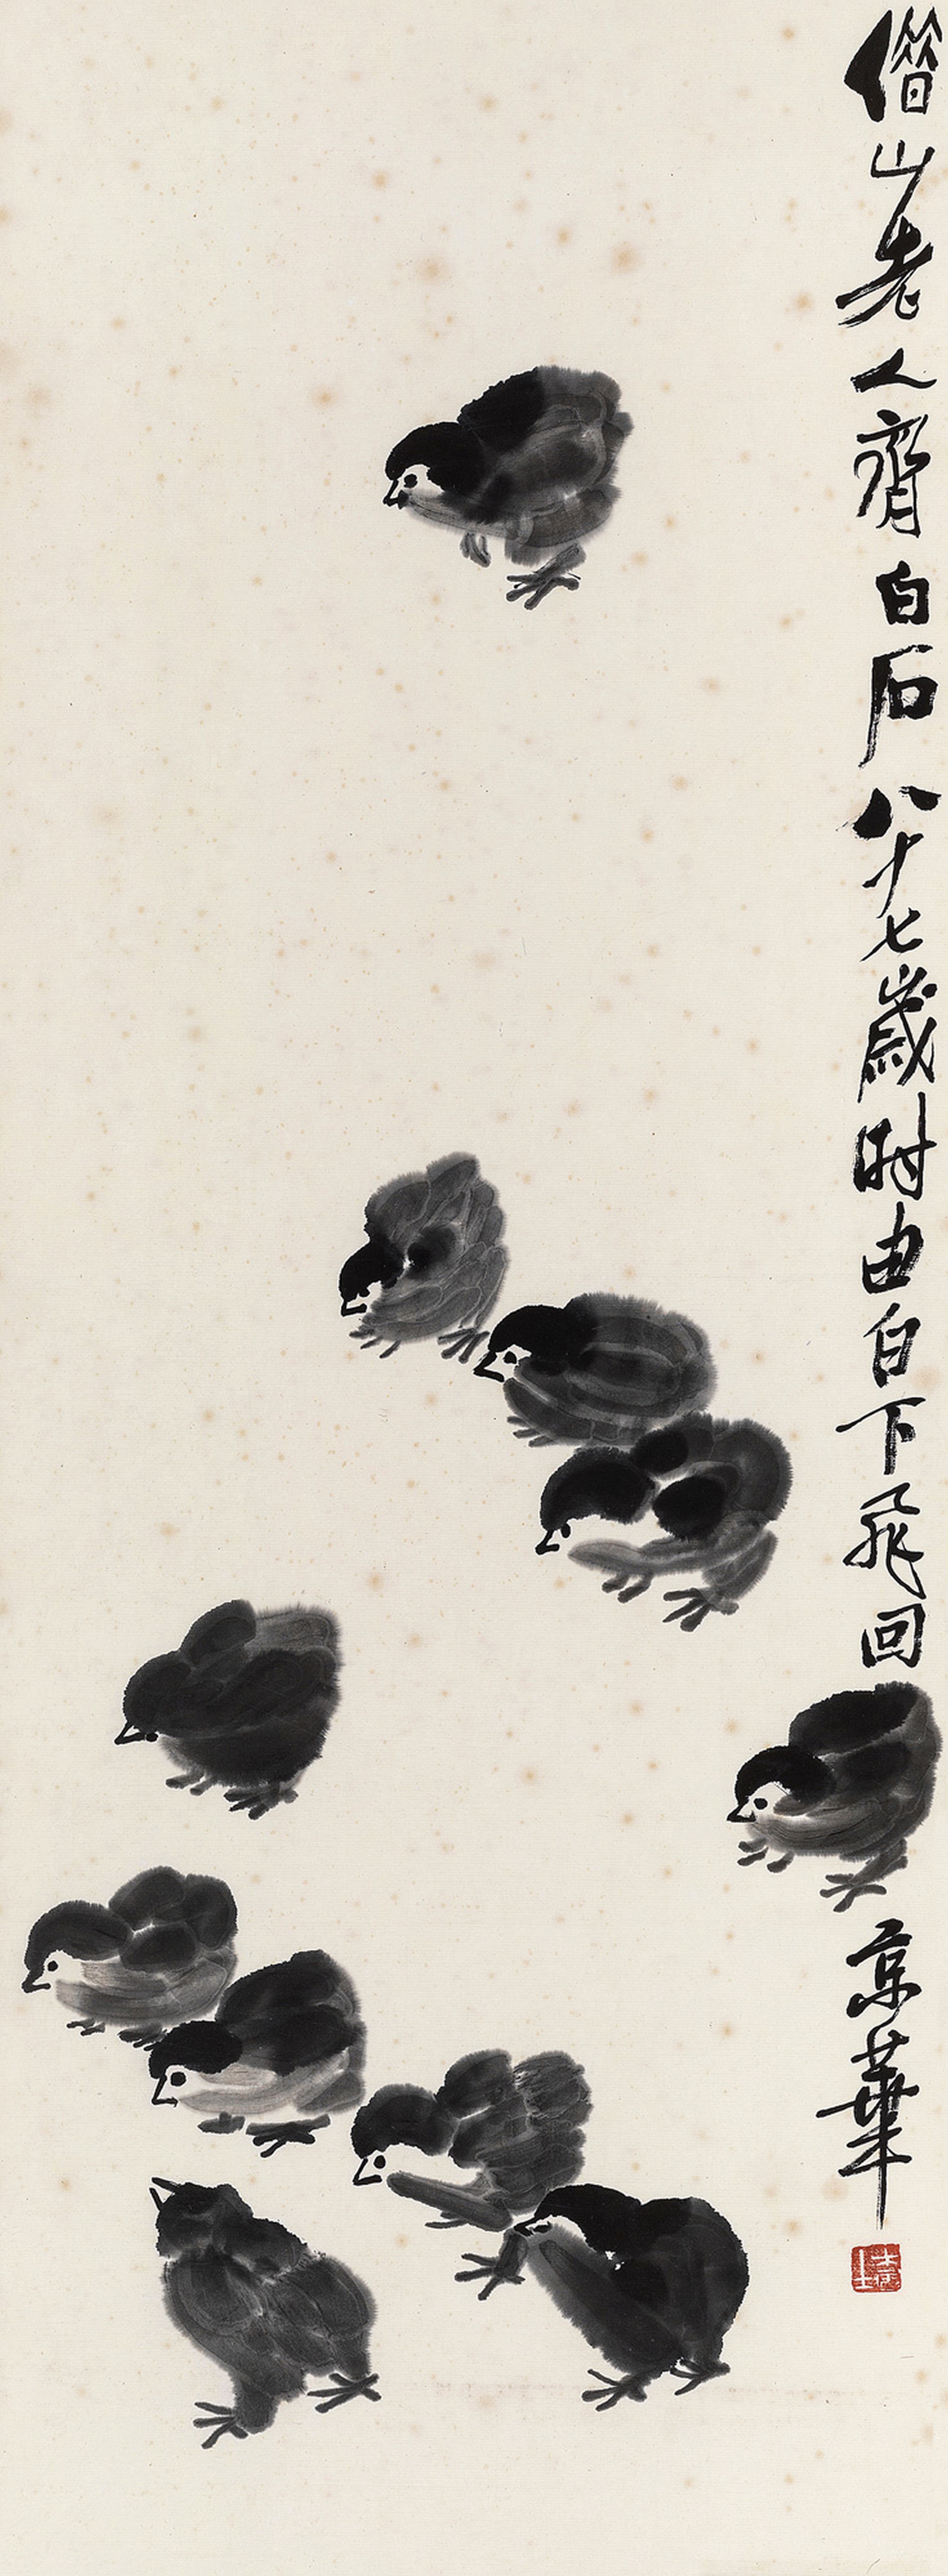 借山老人齊白石八十七歲时由白下飛回京華